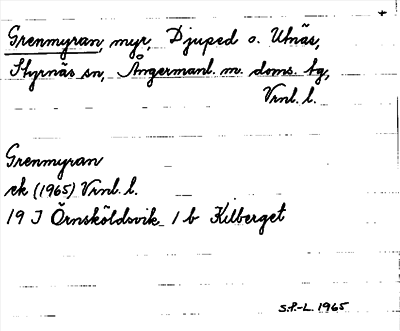 Grenmyran, myr, Djuped o. Utnäs,
Styrnäs sn, Ångermanl. m. doms. tg,
Vrnl. l.
Grenmyran
ek (1965) Vrnl. l.
19 J Örnsköldsvik 1 b Kilberget
S.P.-L. 1965